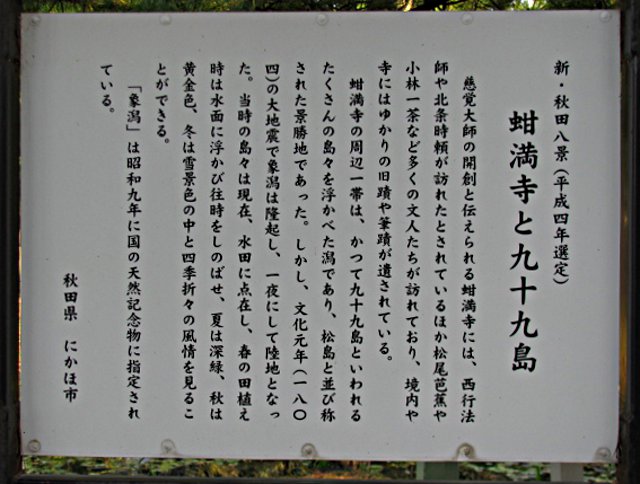 新・秋田八景(平成四年選定)
蚶満寺と九十九島
慈覚大師の開創と伝えられる蚶満寺には、西行法
師や北条時頼が訪れたとされているほか松尾芭蕉や
小林一茶など多くの文人たちが訪れており、境内や
寺にはゆかりの旧蹟や筆蹟が遺されている。
蚶満寺の周辺一帯は、かつて九十九島といわれる
たくさんの島々を浮かべた潟であり、松島と並び称
された景勝地であった。しかし、文化元年(一八〇
四)の大地震で象潟は隆起し、一夜にして陸地となっ
た。当時の島々は現在、水田に点在し、春の田植え
時は水面に浮かび往時をしのばせ、夏は深緑、秋は
黄金色、冬は雪景色の中と四季折々の風情を見るこ
とができる。
「象潟」は昭和九年に国の天然記念物に指定され
ている。
秋田県 にかほ市